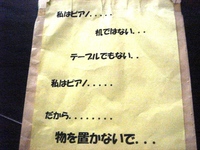 私はピアノ.....
机ではない...
テーブルでもない..
私はピアノ.....
だから........
物を置かないで...